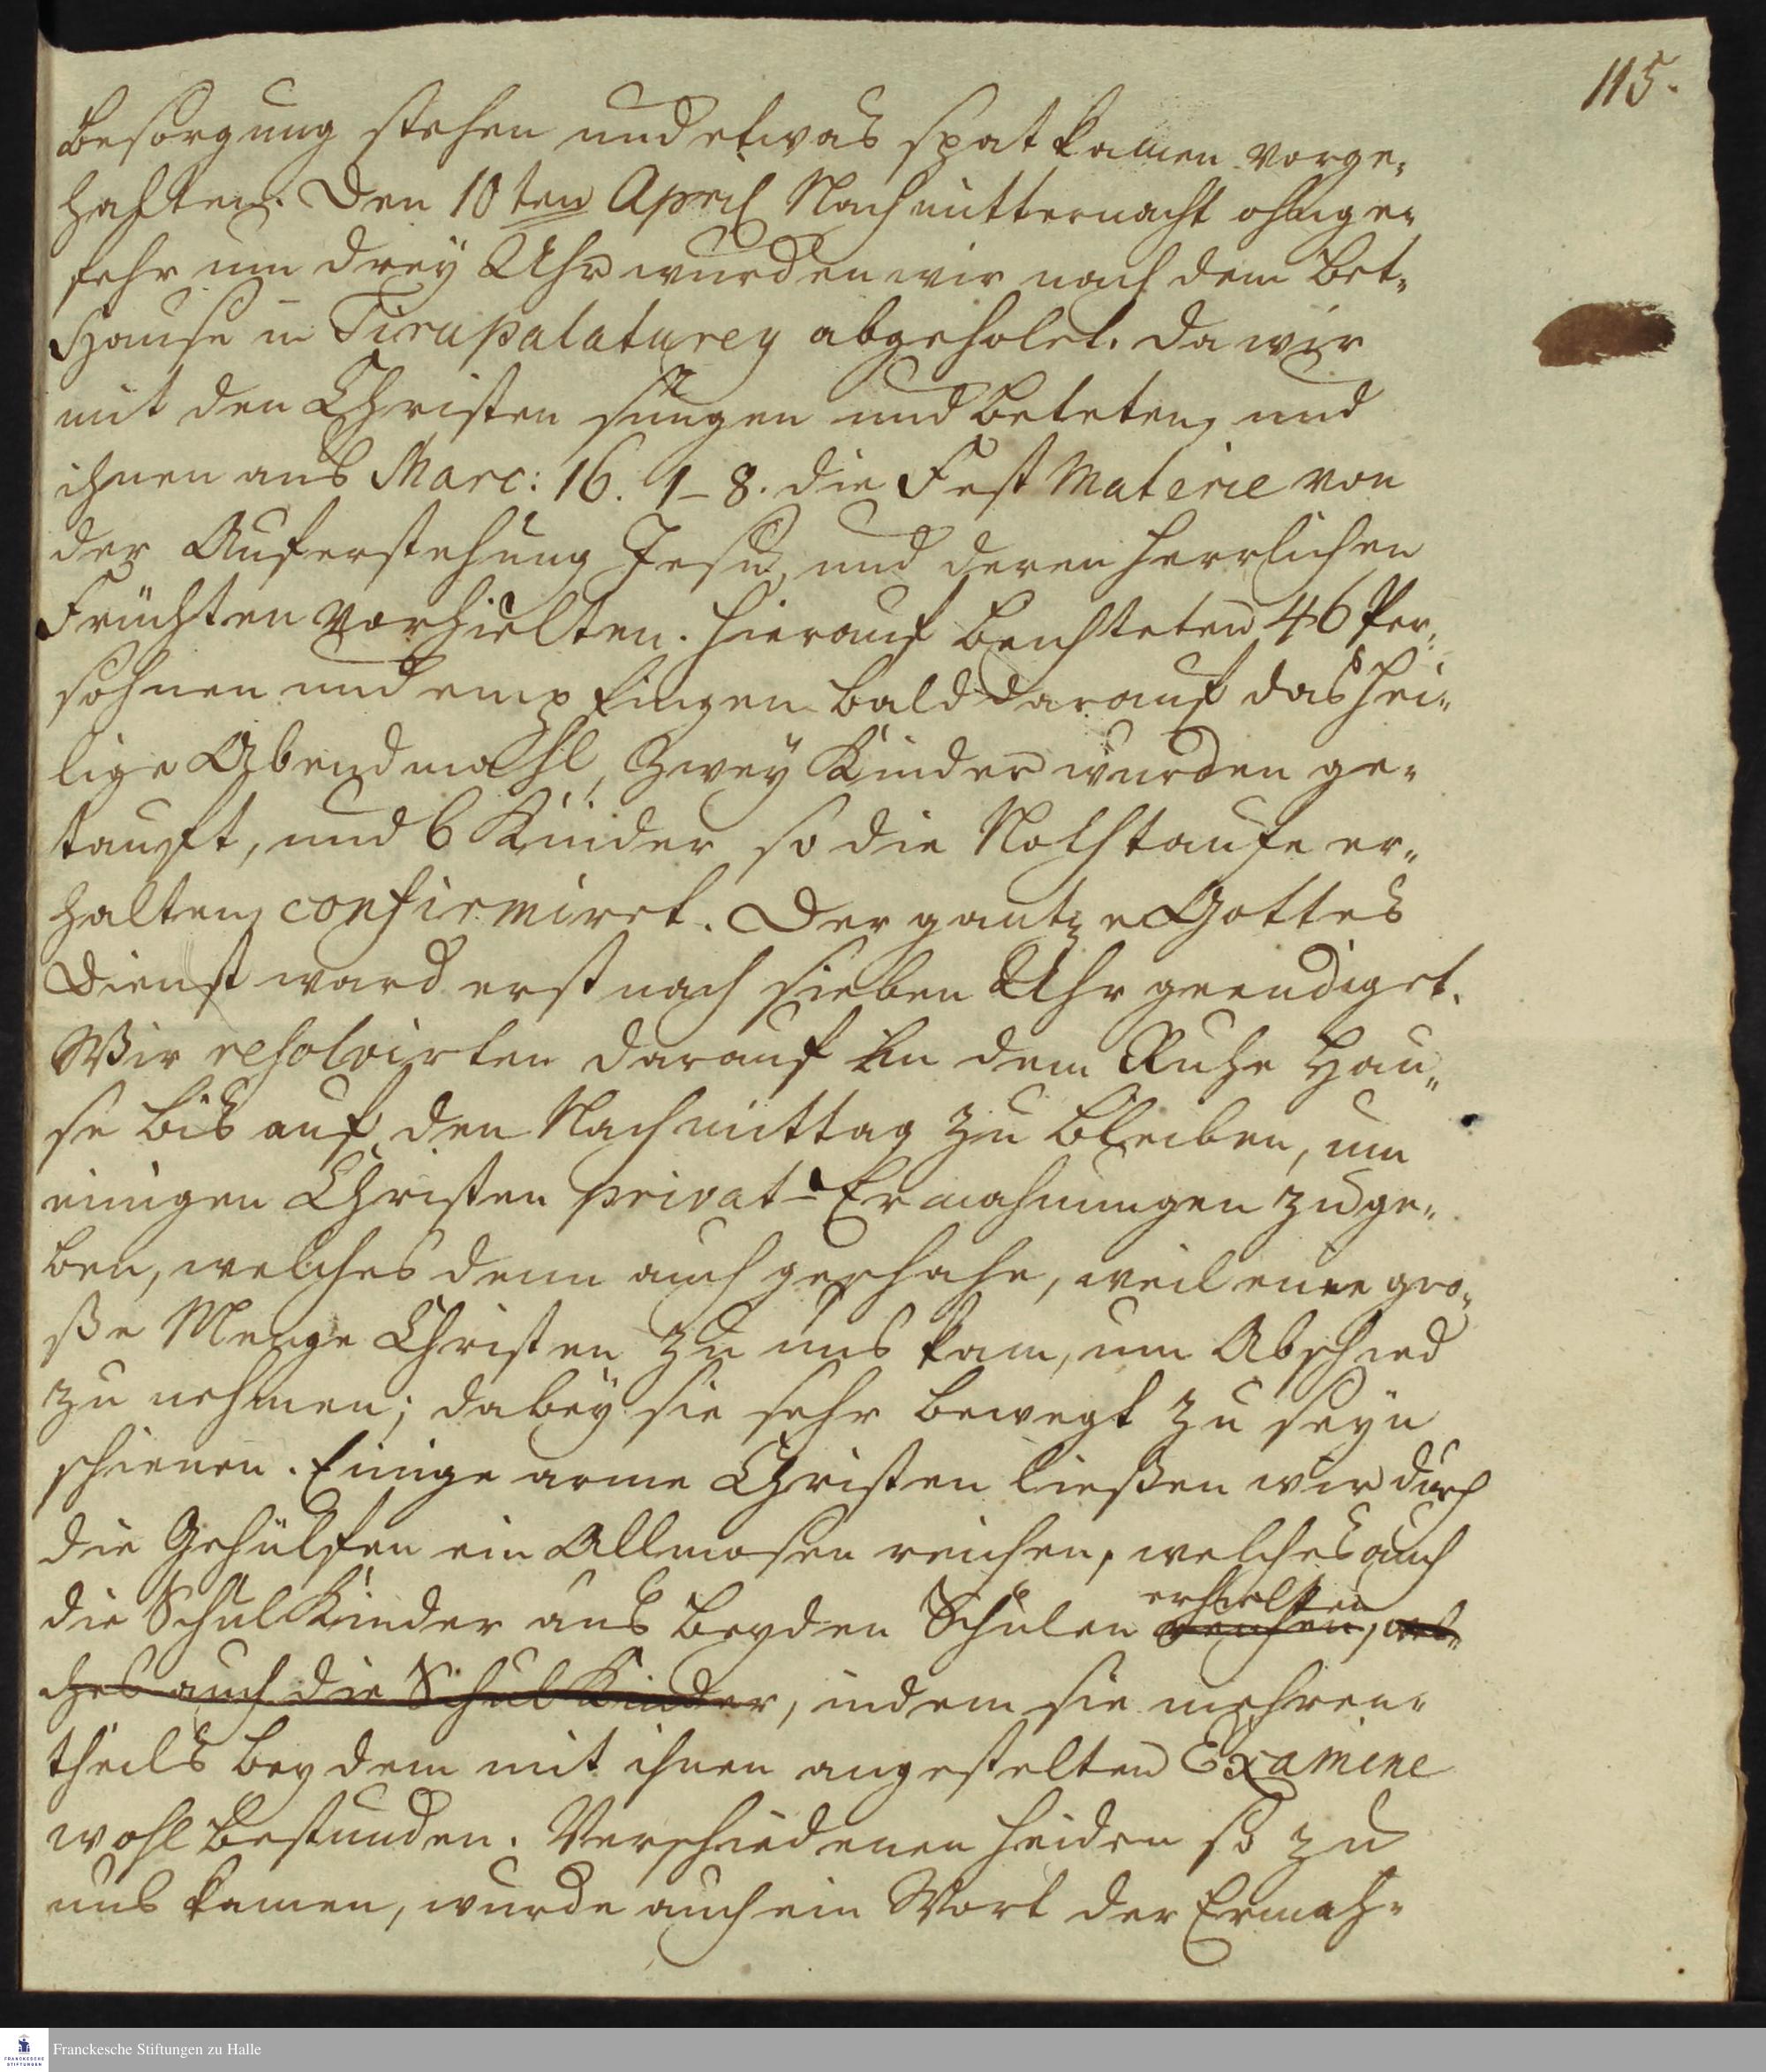 115.
besorgung stehen und etwas spat kamen vorge-
halten. Den 10ten April Nachmitternacht ohnge-
fehr um drey Uhr wurden wir nach dem Bet-
Hause in Tirupalaturey abgeholet. da wir
mit den Christen sungen und beteten, und
ihnen aus Marc: 16. 1-8. die Fest Materie von
der Auferstehung Jesu, und deren herrlichen
Früchten vorhielten. hierauf beichteten 46 Per-
sohnen und empfingen bald darauf das hei-
lige Abendmahl, Zwey Kinder wurden ge-
tauft, und 6 Kinder so die Nothtaufe er-
halten, confirmiret. Der gantze Gottes
Dienst ward erst nach sieben Uhr geendiget.
Wir resolvirten darauf in dem Ruhe Hau-
se bis auf den Nachmittag zu bleiben, um
einigen Christen privat-Ermahnungen zu ge-
ben, welches denn auch geschahe, weil eine gro-
ße Menge Christen zu uns kam, um Abschied
zu nehmen; dabey sie sehr bewegt zu seyn
schienen. Einige arme Christen ließen wir durch
die Gehülfen ein Allmosen reichen, welches auch
die Schul Kinder aus beyden Schulen erhielten reichen, wel-
ches auch die Schul Kinder, indem sie mehren-
theils bey dem mit ihnen angestelten Examine
wohl bestunden. Verschiedenen heiden so zu
uns kamen, wurde auch ein Wort der Ermah-
Franckesche Stiftungen zu Halle
FRANCKESCHE
STIFTUNGEN